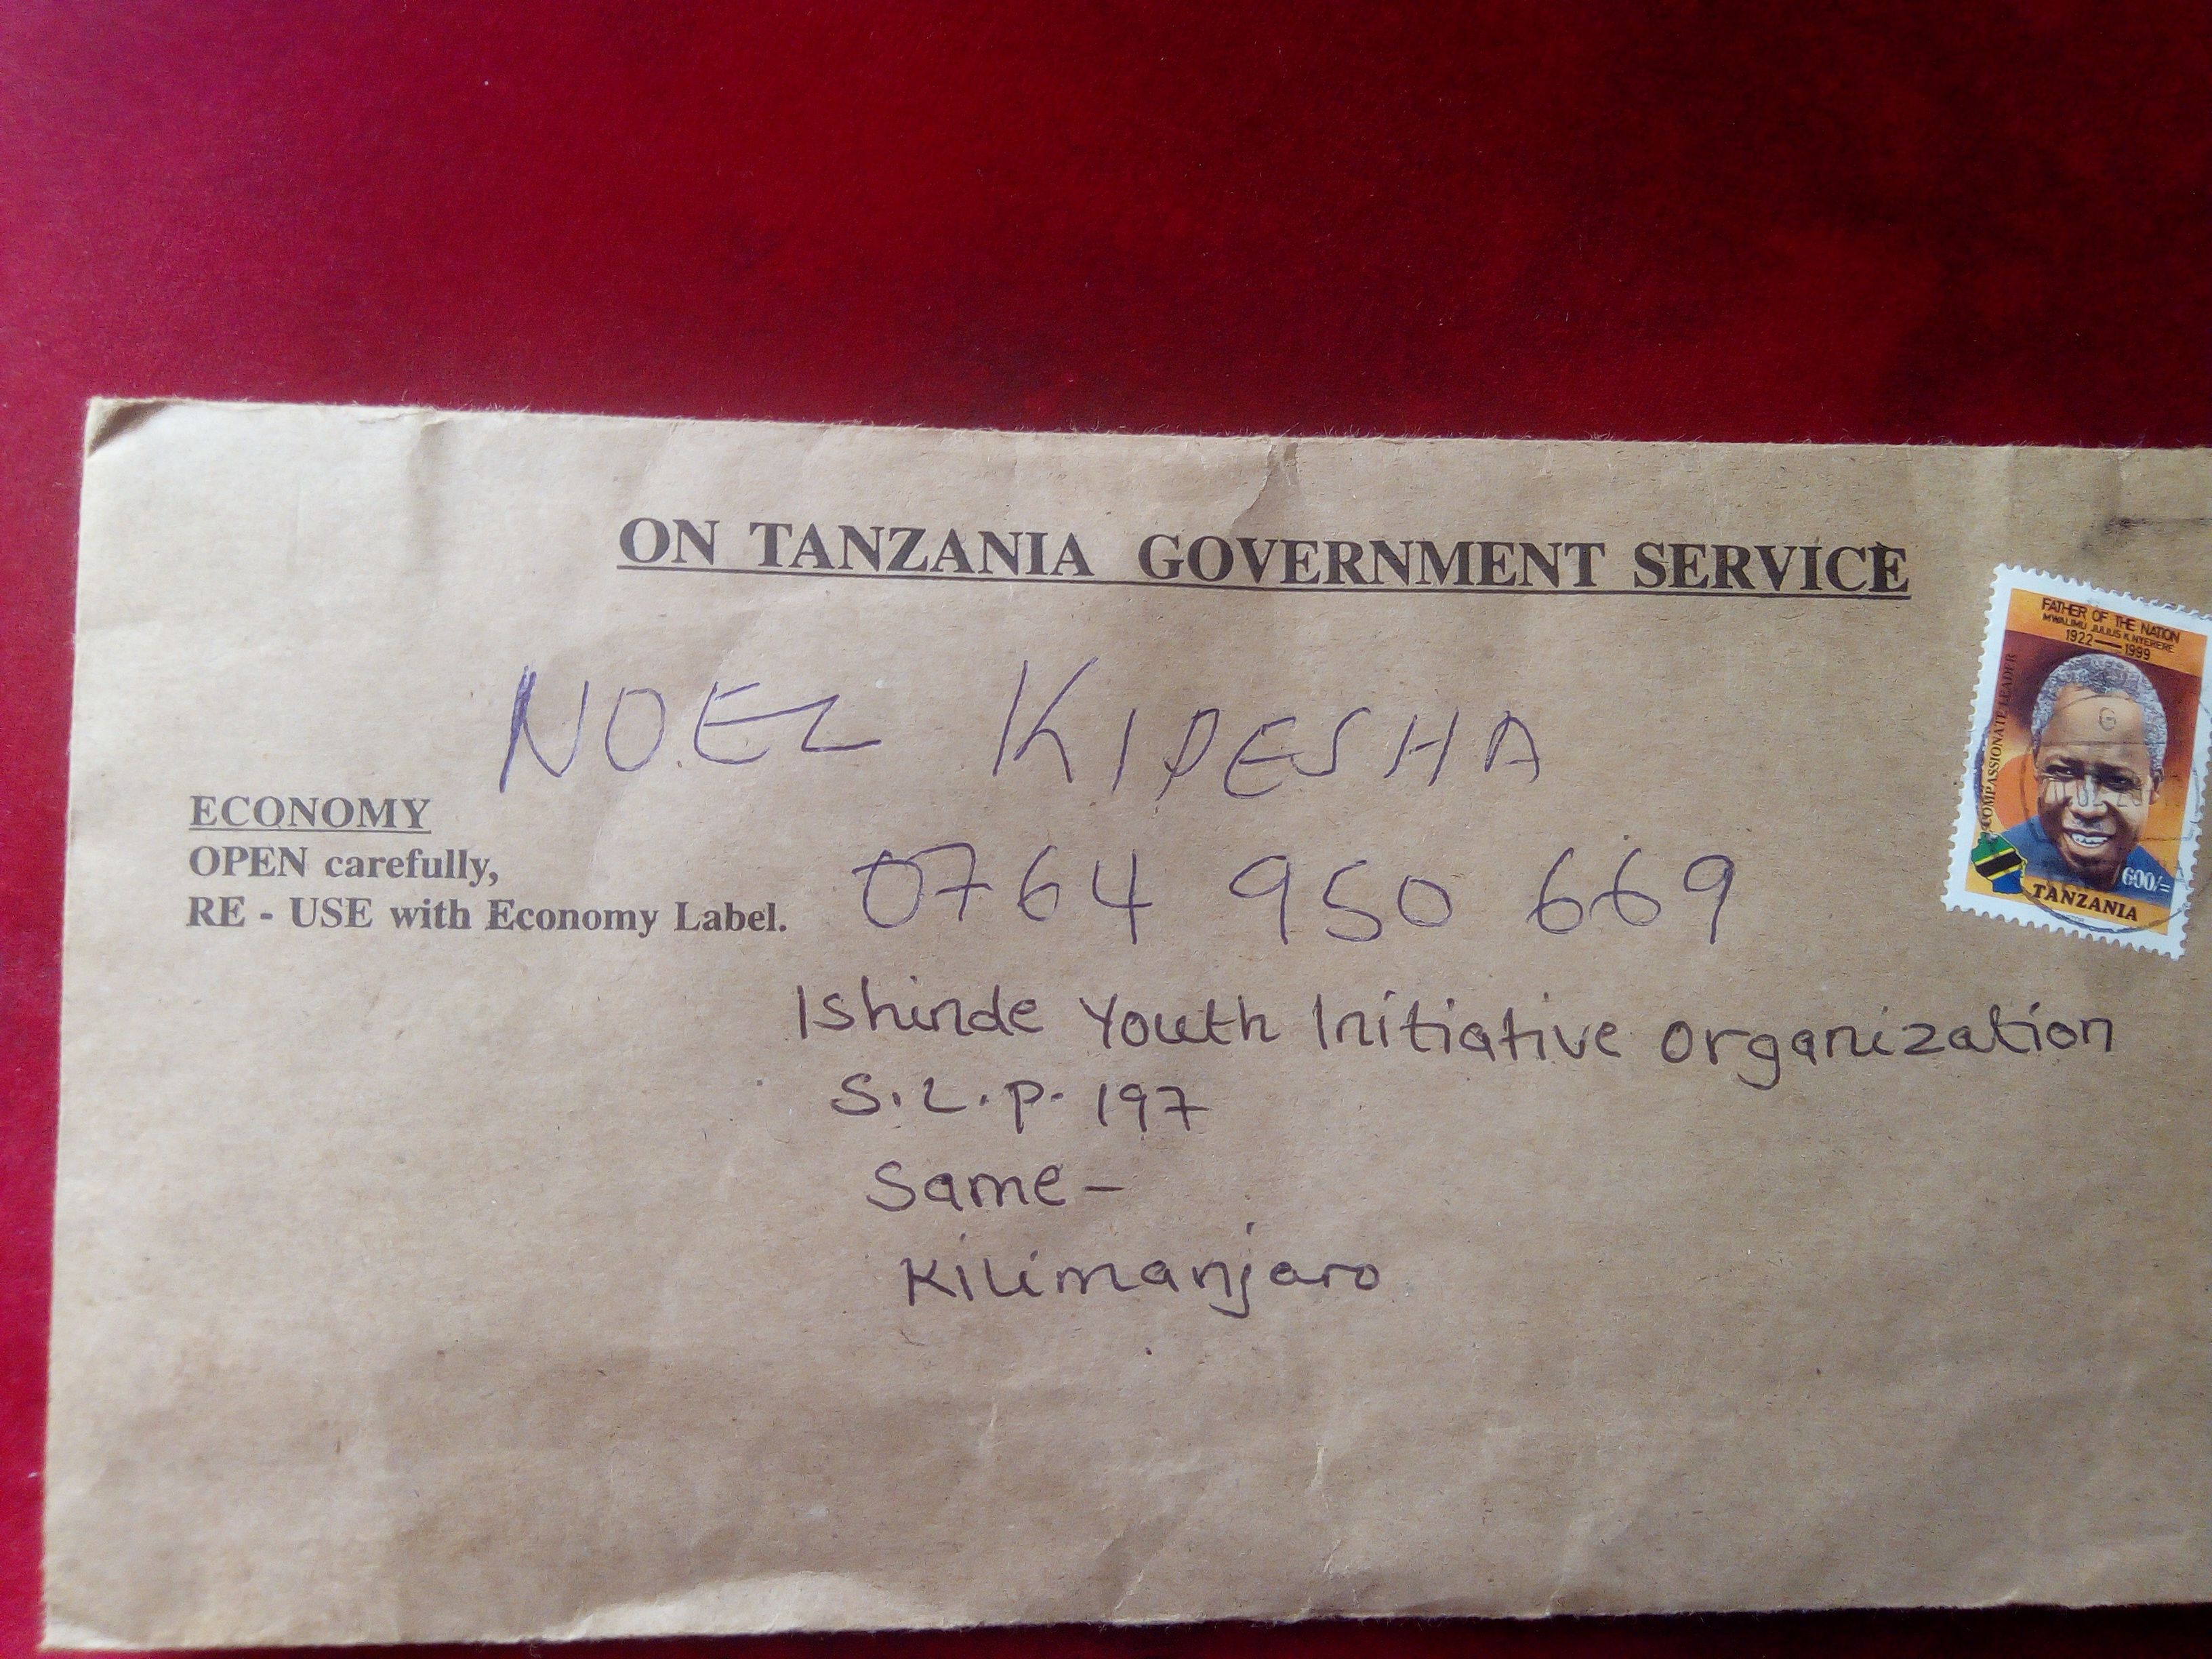 ON TANZANIA GOVERNMENT SERVICE
FATHER OF THE NATION
MWALIMU JULIUS K. NYERERE
1922 — 1999
COMPASSIONATE LEADER
600/=
TANZANIA
NOEL KIPESHA
ECONOMY
OPEN carefully,
RE - USE with Economy Label.
0764 950 669
Ishinde Youth Initiative Organization
S.L.P. 197
Same -
Kilimanjaro